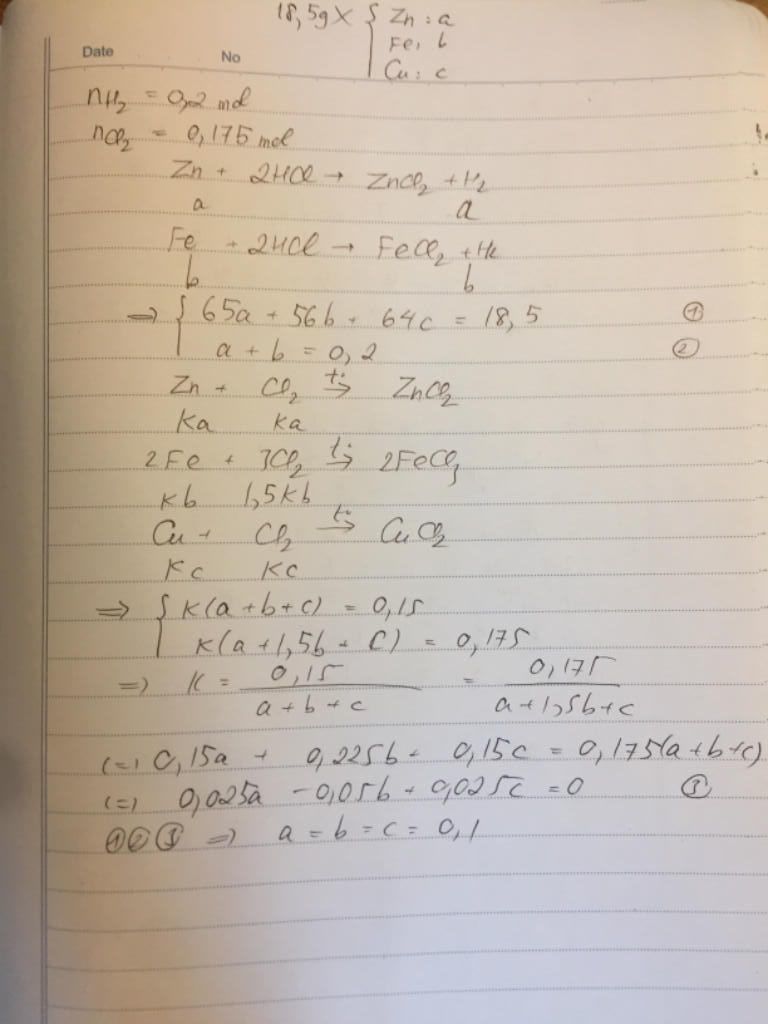 18,5g X { Zn : a
Fe : b
Cu : c
Date No
nH₂ = 0,2 mol
nCl₂ = 0,175 mol
Zn + 2HCl → ZnCl₂ + H₂
a a
Fe + 2HCl → FeCl₂ + H₂
b b
=> { 65a + 56b + 64c = 18,5 ①
a + b = 0,2 ②
Zn + Cl₂ t°→ ZnCl₂
Ka Ka
2Fe + 3Cl₂ t°→ 2FeCl₃
Kb 1,5Kb
Cu + Cl₂ t°→ CuCl₂
Kc Kc
=> { K(a + b + c) = 0,15
K(a + 1,5b + c) = 0,175
=> K = 0,15 / (a + b + c) = 0,175 / (a + 1,5b + c)
(=) 0,15a + 0,225b + 0,15c = 0,175(a + b + c)
(=) 0,025a - 0,05b + 0,025c = 0 ③
①②③ => a = b = c = 0,1